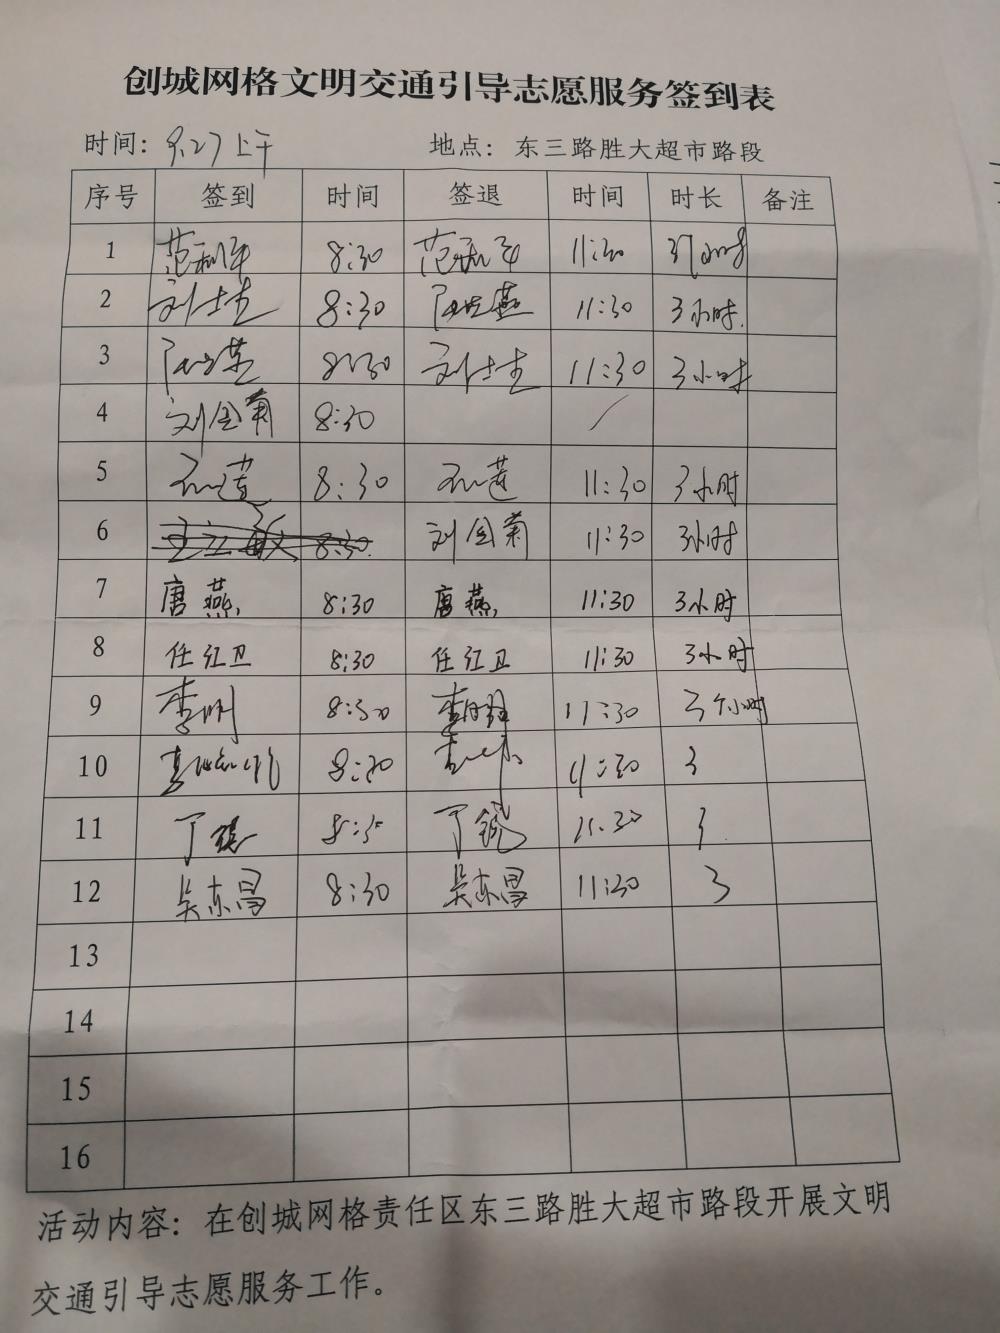 创城网格文明交通引导志愿服务签到表
时间：9.27上午 地点：东三路胜大超市路段
序号 签到 时间 签退 时间 时长 备注
1 范利华 8:30 范利华 11:30 3小时
2 刘士杰 8:30 11:30 3小时.
3 8:30 刘士杰 11:30 3小时
4 刘金菊 8:30 /
5 8:30 11:30 3小时
6 8:30 刘金菊 11:30 3小时
7 唐燕 8:30 唐燕 11:30 3小时
8 任红卫 8:30 任红卫 11:30 3小时
9 李刚 8:30 11:30 3个小时
10 8:30 11:30 3
11 8:30 11:30 3
12 吴东昌 8:30 吴东昌 11:30 3
13
14
15
16
活动内容：在创城网格责任区东三路胜大超市路段开展文明
交通引导志愿服务工作。